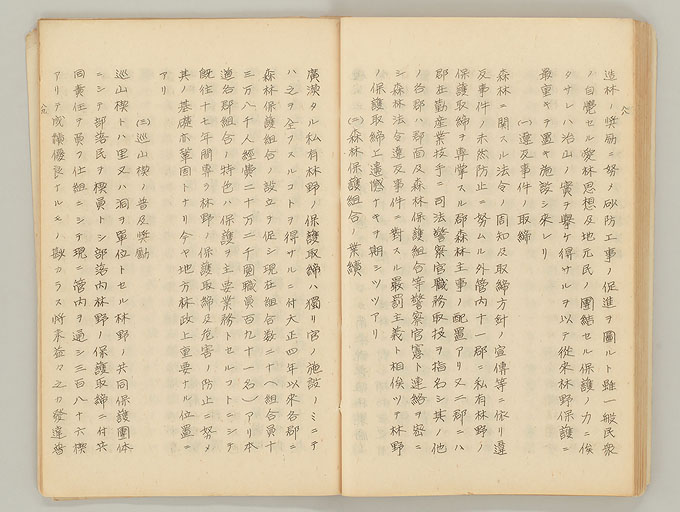 造林ノ奨励ニ努メ砂防工事ノ促進ヲ圖ルト雖一般民衆
ノ自覺セル愛林思想及地元民ノ團結セル保護ノ力ニ俟
タサレハ治山ノ實ヲ擧ケ得サルヲ以テ從來林野保護ニ
最重キヲ置キ施設シ來レリ
(一)違反事件ノ取締
森林ニ関スル法令ノ周知及取締方針ノ宣傳等ニ依リ違
反事件ノ未然防止ニ努ムル外管内十一郡ニ私有林野ノ
保護取締ヲ專掌スル郡森林主事ノ配置アリ又二郡ニハ
郡在勤産業技手ニ司法警察官職務取扱ヲ指名シ其ノ他
ノ各郡ハ郡面及森林保護組合等警察官憲ト連絡ヲ密ニ
シ森林法令違反事件ニ對スル嚴罰主義ト相俟ツテ林野
ノ保護取締上遺憾ナキヲ期シツツアリ
(二)森林保護組合ノ業績
廣漠タル私有林野ノ保護取締ハ獨リ官ノ施設ノミニテ
ハ之ヲ全フスルコトヲ得サルニ付大正四年以來各郡ニ
森林保護組合ノ設立ヲ促シ現在組合数二十(組合員十
三万八千人經費二十万二千圓職員百九十一名)アリ本
道各郡組合ノ特色ハ保護ヲ主要業務トセルコトニシテ
既往十七年間專ラ林野ノ保護取締及危害ノ防止ニ努メ
其ノ基礎亦鞏固トナリ今ヤ地方林政上重要ナル位置ニ
アリ
(三)巡山稧ノ普及奨勵
巡山稧トハ里又ハ洞ヲ單位トセル林野ノ共同保護團体
ニシテ部落民ヲ稧員トシ部落内林野ノ保護取締ニ付共
同責任ヲ負フ仕組ニシテ現ニ管内ヲ通シ三百八十六稧
アリテ成績優良ナルモノ尠カラス將來益々之カ發達普